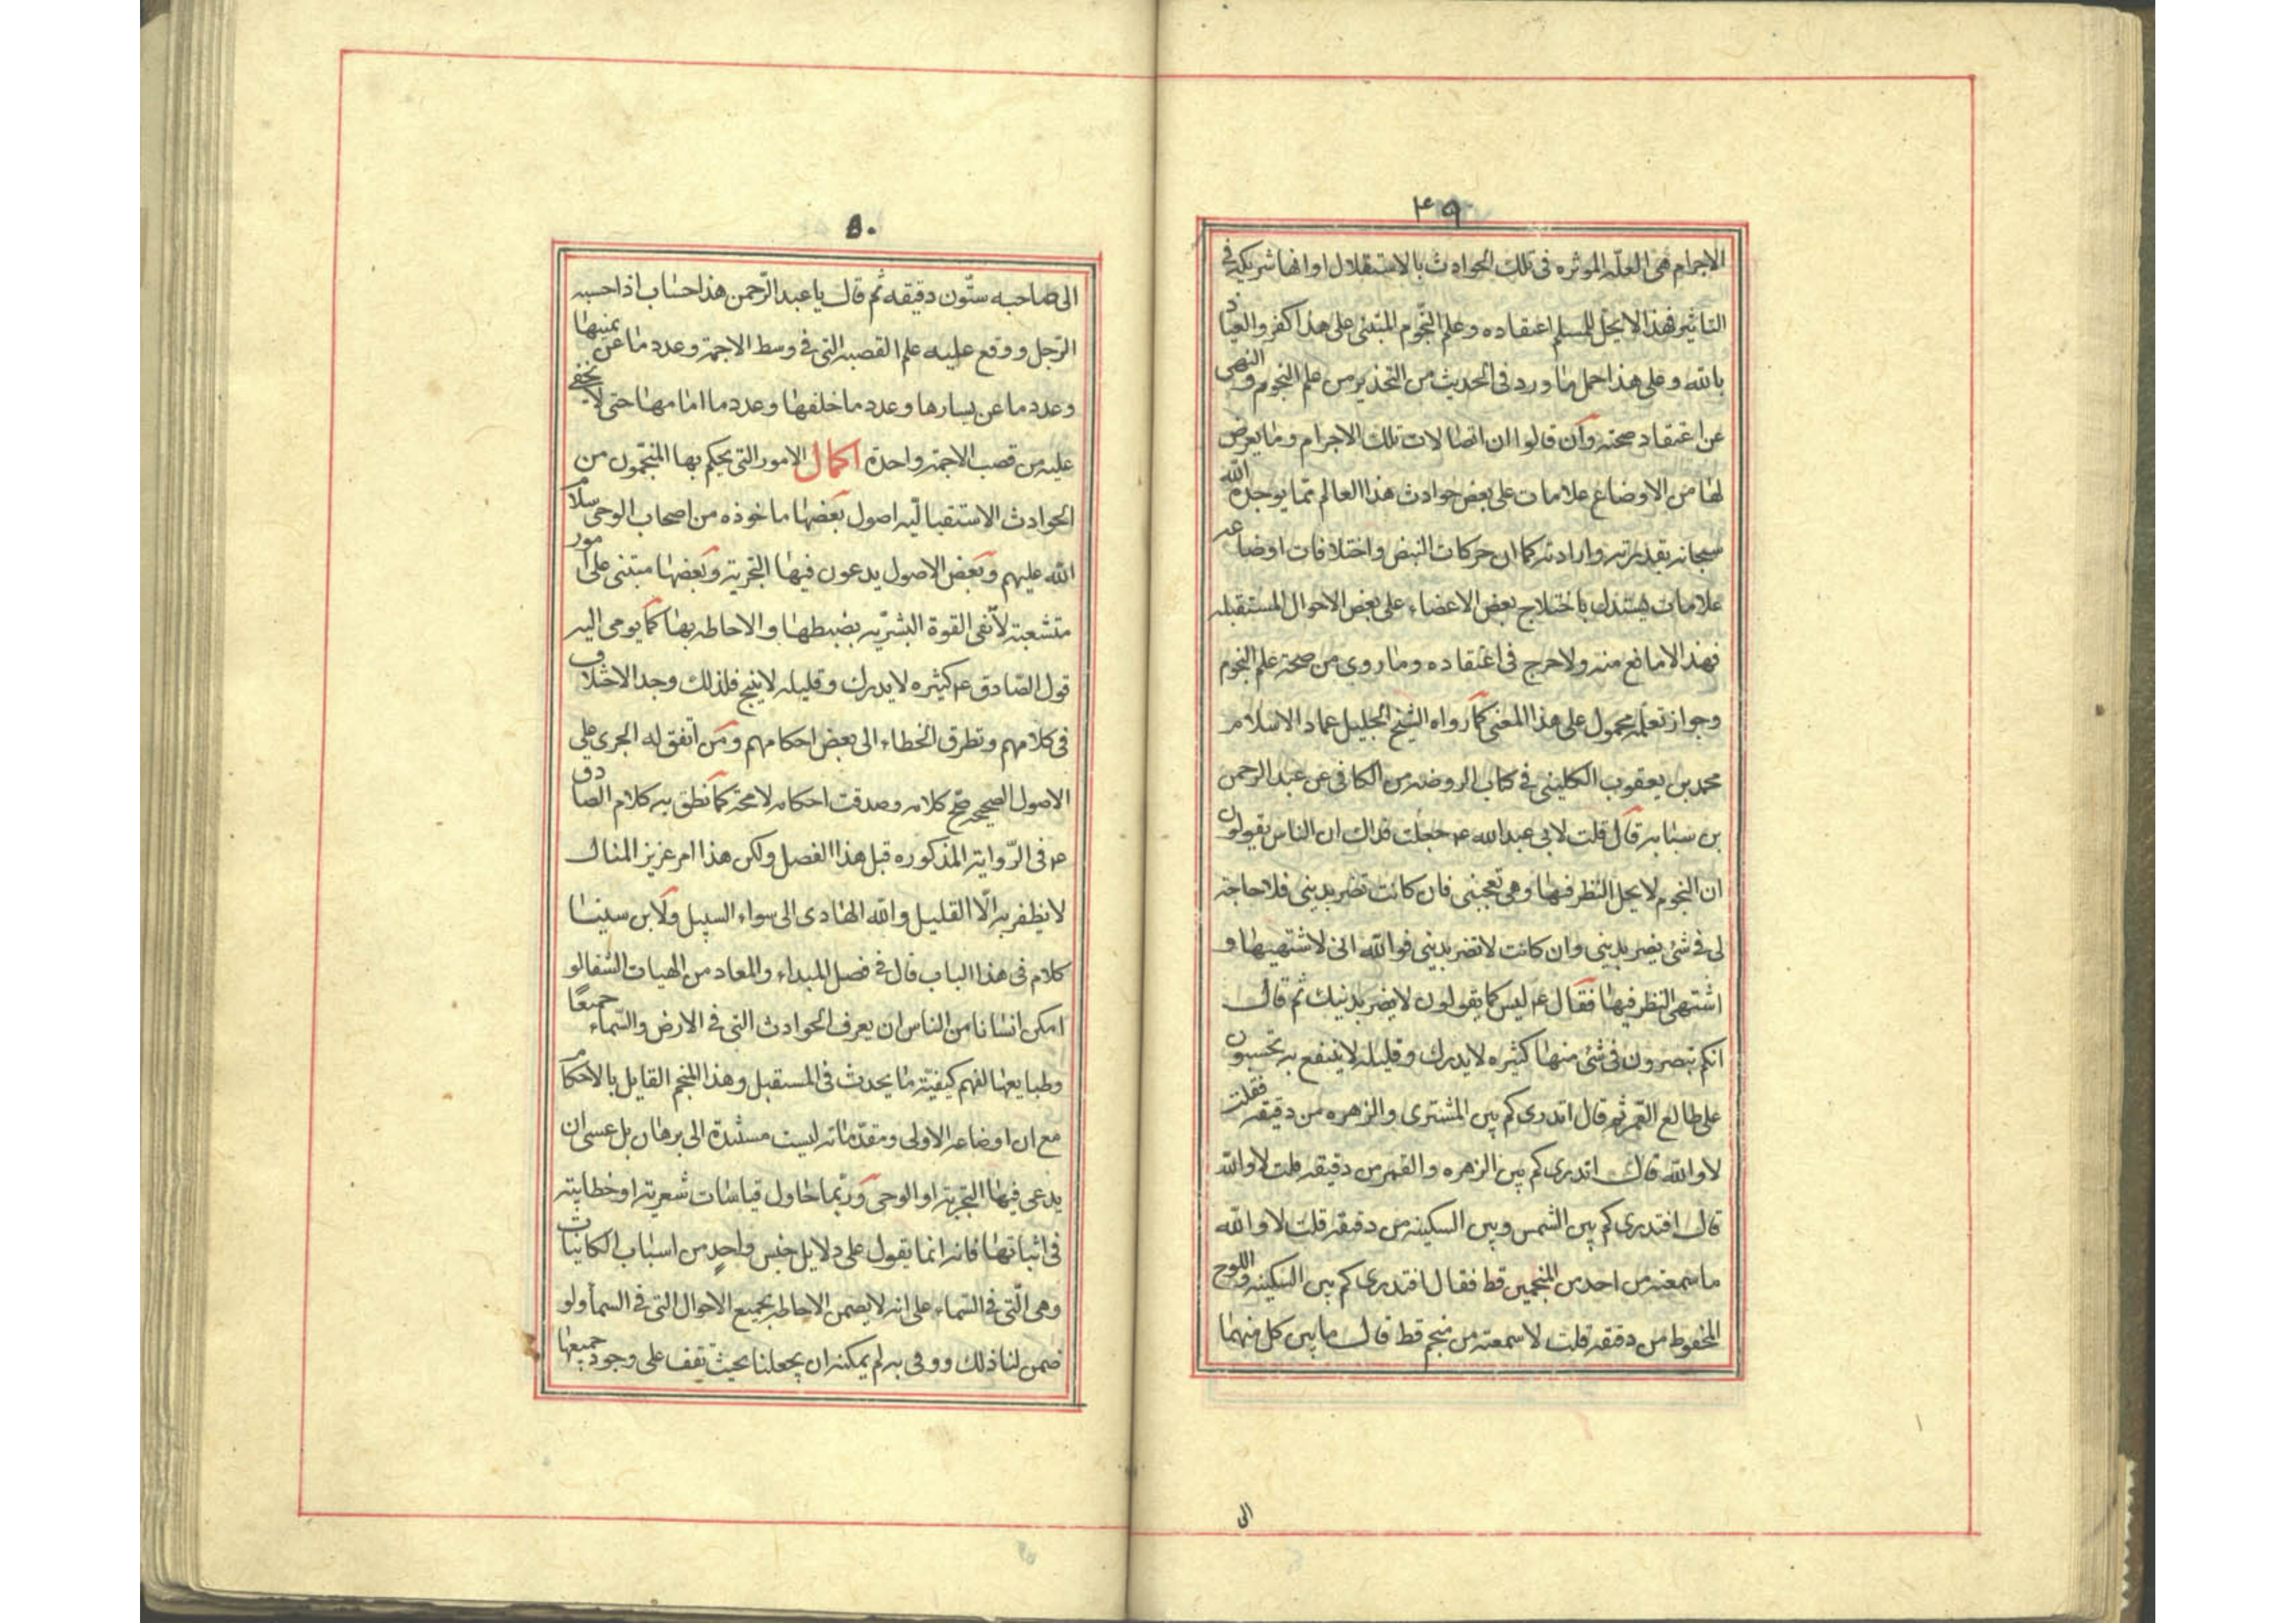 ٤٩
الاجرام هی العلّه الموثره فی تلک الحوادث بالاستقلال او انها شریکه فی
التاثیر فهذا لا یحل للمسلم اعتقاده و علم النّجوم المبتنی علی هذا کفر و العیاذ
بالله و علی هذا حمل ما ورد فی الحدیث من التحذیر من علم النجوم و النهی
عن اعتقاد صحته وان قالوا ان اتصالات تلک الاجرام وما یعرض
لها من الاوضاع علامات علی بعض حوادث هذا العالم مما یوجده الله
سبحانه بقدرته وارادته کما ان حرکات النبض و اختلافات اوضاعه
علامات یستدل باختلاج بعض الاعضاء علی بعض الاحوال المستقبله
فهذا لا مانع منه ولا حرج فی اعتقاده وما روی من صحة علم النجوم
وجواز تعلمه محمول علی هذا المعنی کما رواه الشیخ الجلیل عماد الاسلام
محمد بن یعقوب الکلینی فی کتاب الروضه من الکافی عن عبد الرحمن
بن سیابه قال قلت لابی عبد الله ع جعلت فداک ان الناس یقولون
ان النجوم لا یحل النظر فیها وهی تعجبنی فان کانت تضر بدینی فلا حاجة
لی فی شئ یضر بدینی وان کانت لا تضر بدینی فوالله انی لاشتهیها و
اشتهی النظر فیها فقال ع لیس کما یقولون لا یضر بدینک ثم قال
انکم تبصرون فی شئ منها کثیره لا یدرک و قلیله لا ینتفع به تحسبون
علی طالع القمر ثم قال اتدری کم بین المشتری والزهره من دقیقه فقلت
لا والله قال اتدری کم بین الزهره والقمر من دقیقه قلت لا والله
قال افتدری کم بین الشمس وبین السکینه من دقیقه قلت لا والله
ما سمعته من احد من المنجمین قط فقال افتدری کم بین السکینه واللوح
المحفوظ من دقیقه قلت لا سمعته من منجم قط قال ما بین کل منهما
الی
٥٠
الی صاحبه ستّون دقیقه ثم قال یا عبد الرّحمن هذا حساب اذا حسبه
الرّجل ووقع علیه علم القصبه التی فی وسط الاجمة وعدد ما عن یمینها
وعدد ما عن یسارها وعدد ما خلفها وعدد ما امامها حتی لا یخفی
علیه من قصب الاجمة واحدة اکمال الامور التی یحکم بها المنجّمون من
الحوادث الاستقبالیّه اصول بعضها ماخوذه من اصحاب الوحی سلام
الله علیهم وبعض الاصول یدعون فیها التجربة وبعضها مبتنی علی امور
متشعبة لا تفی القوة البشریّه بضبطها والاحاطه بها کما یومی الیه
قول الصّادق ع کثیره لا یدرک وقلیله لا ینتج فلذلک وجد الاختلاف
فی کلامهم وتطرق الخطاء الی بعض احکامهم ومن اتفق له الجری علی
الاصول الصحیحه صح کلامه وصدقت احکامه لا محة کما نطق به کلام الصادق
ع فی الرّوایة المذکوره قبل هذا الفصل ولکن هذا امر عزیز المنال
لا یظفر به الّا القلیل والله الهادی الی سواء السبیل ولابن سینا
کلام فی هذا الباب قال فی فصل المبداء والمعاد من الهیات الشفا لو
امکن انسانا من الناس ان یعرف الحوادث التی فی الارض والسّماء جمیعًا
وطبایعها لفهم کیفیّة ما یحدث فی المستقبل وهذا المنجم القایل بالاحکام
مع ان اوضاعه الاولی ومقدّماته لیست مستندة الی برهان بل عسی ان
یدعی فیها التجربة او الوحی وربّما حاول قیاسات شعریة او خطابیة
فی اثباتها فانه انما یقول علی دلایل جنس واحدٍ من اسباب الکاینات
وهی الّتی فی السّماء علی انه لا یضمن الاحاطه بجمیع الاحوال التی فی السمأ ولو
ضمن لنا ذلک ووفی به لم یمکنه ان یجعلنا بحیث نقف علی وجود جمیعها